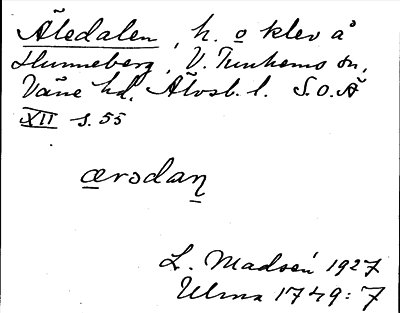 Åledalen, h. o klev å
Hunneberg, V. Tunhems sn,
Väne hd. Älvsb. l. S.O.Ä
XII s. 55
ærɔdaṉ
L. Madsén 1927
Ulma 1749:7